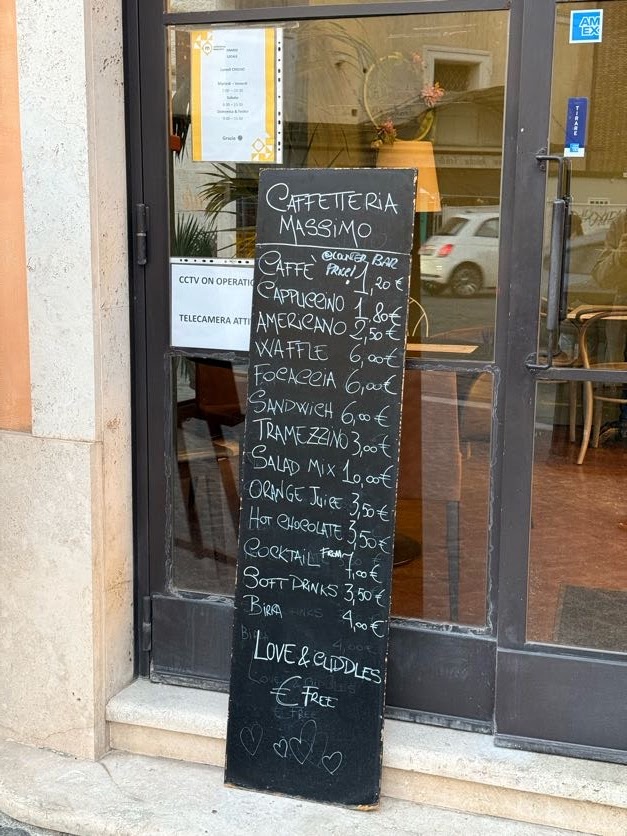 AM
EX
TIRARE
Grazie
CCTV ON OPERATIO
TELECAMERA ATTI
CAFFETTERIA
MASSIMO
@COUNTER BAR
PRICE!
CAFFÈ 1,20€
CAPPUCCINO 1,80€
AMERICANO 2,50€
WAFFLE 6,00€
FOCACCIA 6,00€
SANDWICH 6,00€
TRAMEZZINO 3,00€
SALAD MIX 10,00€
ORANGE JUICE 3,50€
HOT CHOCOLATE 3,50€
COCKTAIL FROM 7,00€
SOFT DRINKS 3,50€
BIRRA 4,00€
LOVE & CUDDLES
€ FREE